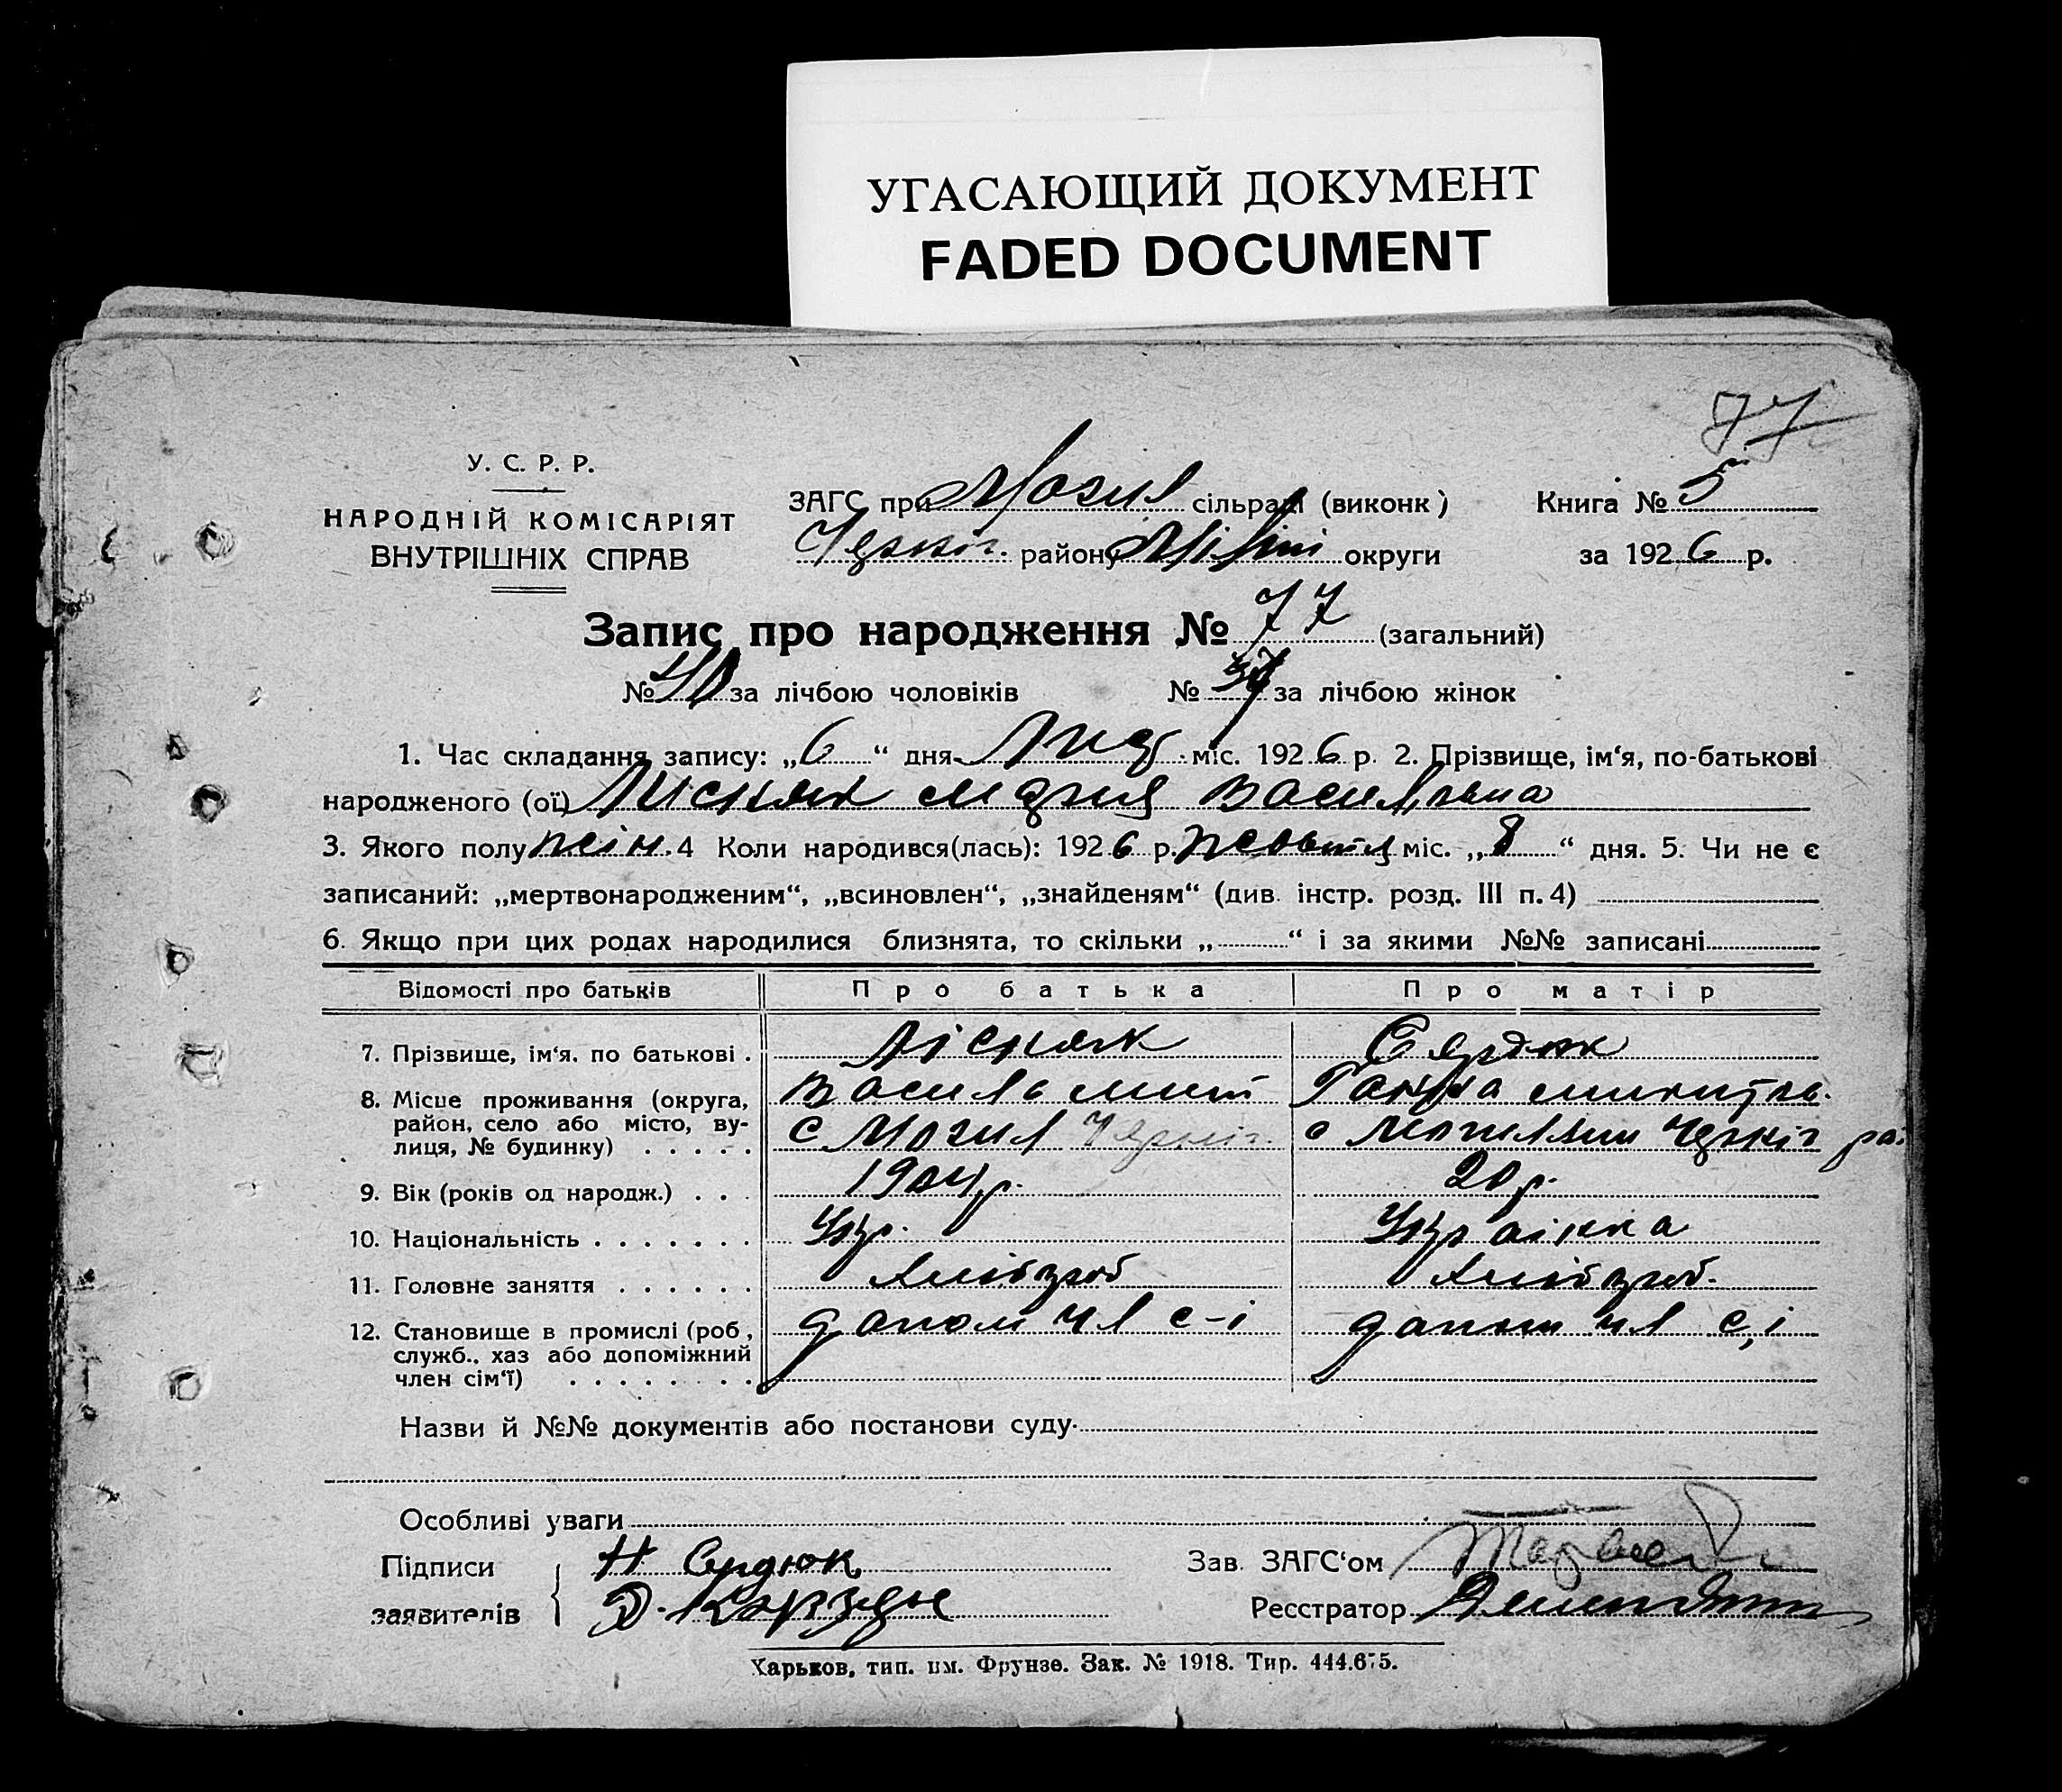 УГАСАЮЩИЙ ДОКУМЕНТ
FADED DOCUMENT
77
У. С. Р. Р.
НАРОДНІЙ КОМІСАРІЯТ
ВНУТРІШНІХ СПРАВ
ЗАГС при Могил сільраді (виконк)
Книга № 5
району округи
за 1926 р.
Запис про народження № 77 (загальний)
№ 40 за лічбою чоловіків № 37 за лічбою жінок
1. Час складання запису: „6“ дня міс. 1926 р. 2. Прізвище, ім‘я, по-батькові
народженого (ої) Лісняк Марія Васильвна
3. Якого полу жін. 4 Коли народився(лась): 1926 р. жовтня міс. „8“ дня. 5. Чи не є
записаний: „мертвонародженим“, „всиновлен“, „знайденям“ (див. інстр. розд. III п. 4)
6. Якщо при цих родах народилися близнята, то скільки „ “ і за якими №№ записані
Відомості про батьків Про батька Про матір
7. Прізвище, ім‘я, по батькові . Лісняк Сердюк
8. Місце проживання (округа, Василь Мит Ганна
район, село або місто, ву- с Могил с
лиця, № будинку) . . . . .
9. Вік (років од народж.) . . . 1904 р. 20 р.
10. Національність . . . . . . . Укр. Українка
11. Головне заняття . . . . . . Хлібороб Хлібороб.
12. Становище в промислі (роб., допом чл с-і допом чл с, і
служб., хаз або допоміжний
член сім‘ї) . . . . . . . .
Назви й №№ документів або постанови суду
Особливі уваги
Підписи Н Сердюк
Зав. ЗАГС‘ом
заявителів Д.
Реєстратор
Харьков, тип. им. Фрунзе. Зак. № 1918. Тир. 444.675.